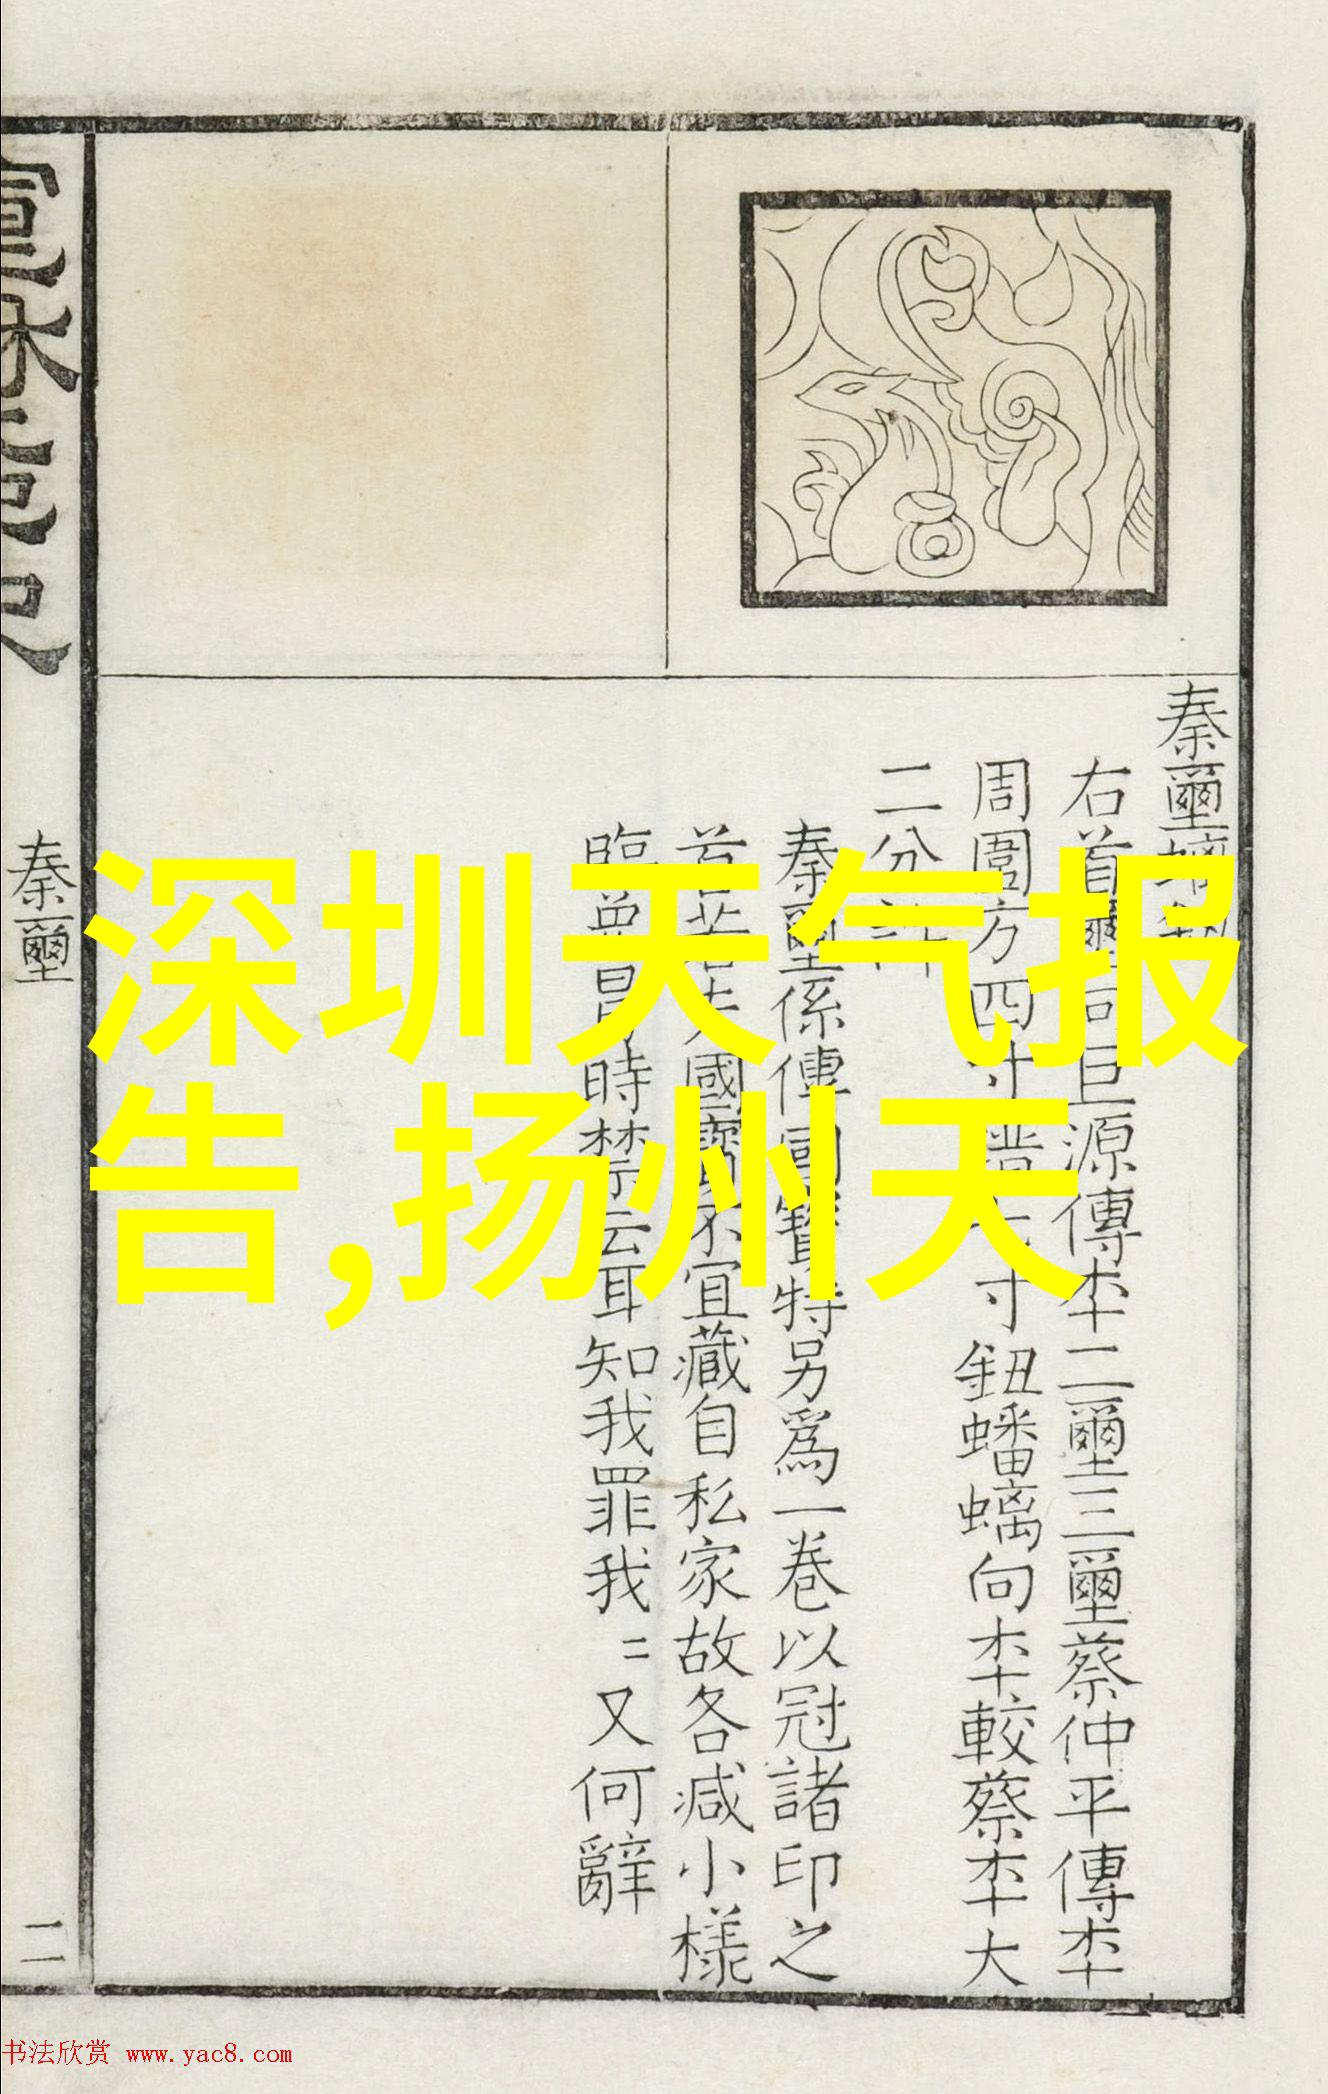 深圳天气报
告,扬州天
秦壐
右首壐巨源傳本二壐三壐蔡仲平傳本
周圍方四寸寸鈕蟠螭向本較蔡本大
二分
秦壐係傳國寶特另爲一卷以冠諸印之
首國寶不宜藏自私家故各减小樣
臨冒時禁云耳知我罪我〻又何辭
秦壐
二
书法欣赏 www.yac8.com